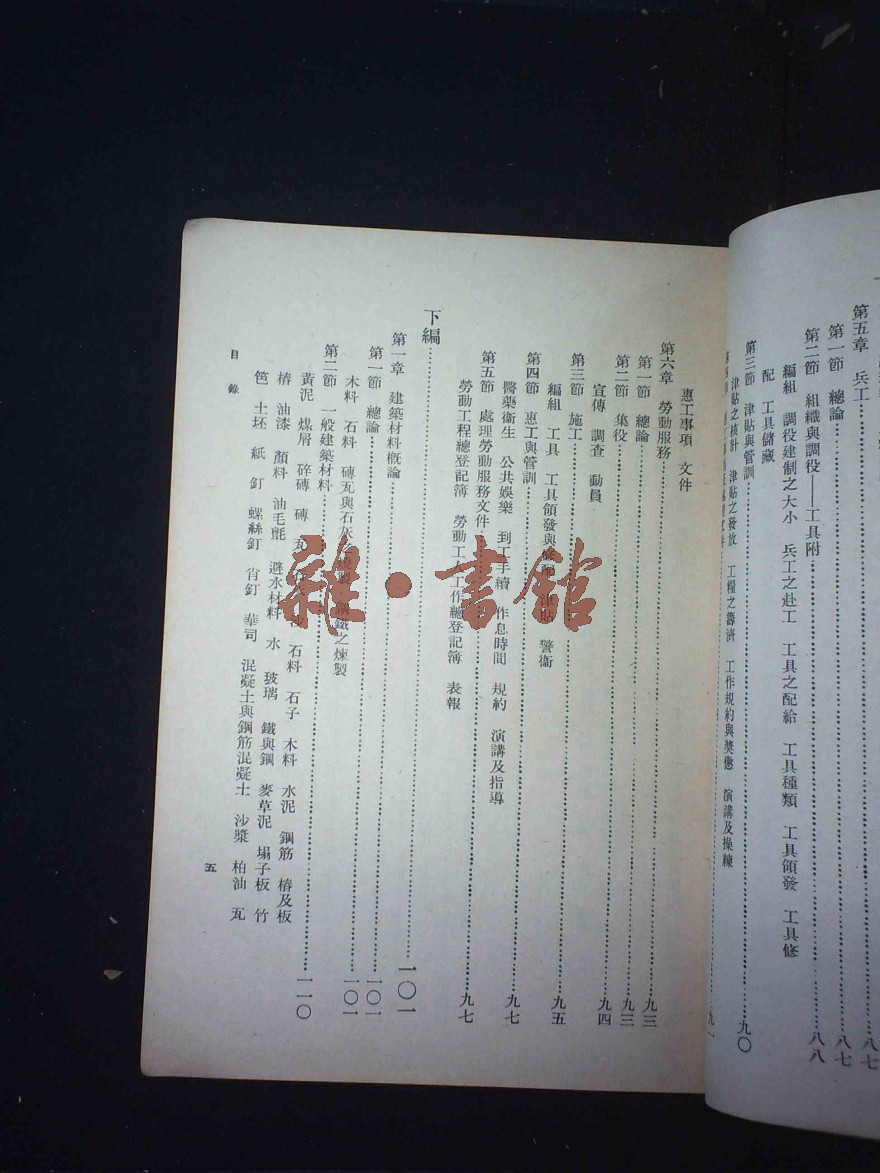 第五章 兵工……八七
第一節 總論……八七
第二節 組織與調役——工具附……八八
編組 調役建制之大小 兵工之赴工 工具之配給 工具種類 工具領發 工具修
配 工具儲藏
第三節 津貼與管訓……九〇
津貼之核計 津貼之發放 工糧之籌濟 工作規約與獎懲 演講及操練
惠工事項 文件
第六章 勞動服務……九三
第一節 總論……九三
第二節 集役……九四
宣傳 調查 動員
第三節 施工……九五
編組 工具 工具領發與 津貼 警衞
第四節 惠工與管訓……九七
醫藥衞生 公共娛樂 到工手續 作息時間 規約 演講及指導
第五節 處理勞動服務文件……九七
勞動工程總登記簿 勞動工人工作總登記簿 表報
下編……一〇一
第一章 建築材料概論……一〇一
第一節 總論……一〇一
木料 石料 磚瓦與石灰 鋼鐵之煉製
第二節 一般建築材料……一一〇
黃泥 煤屑 碎磚 磚 瓦 石料 石子 木料 水泥 鋼筋 椿及板
椿 油漆 顏料 油毛氈 避水材料 水 玻璃 鐵與鋼 麥草泥 塌子板 竹
笆 土坯 紙 釘 螺絲釘 肖釘 華司 混凝土與鋼筋混凝土 沙漿 柏油 瓦
目錄
五
雜·書館